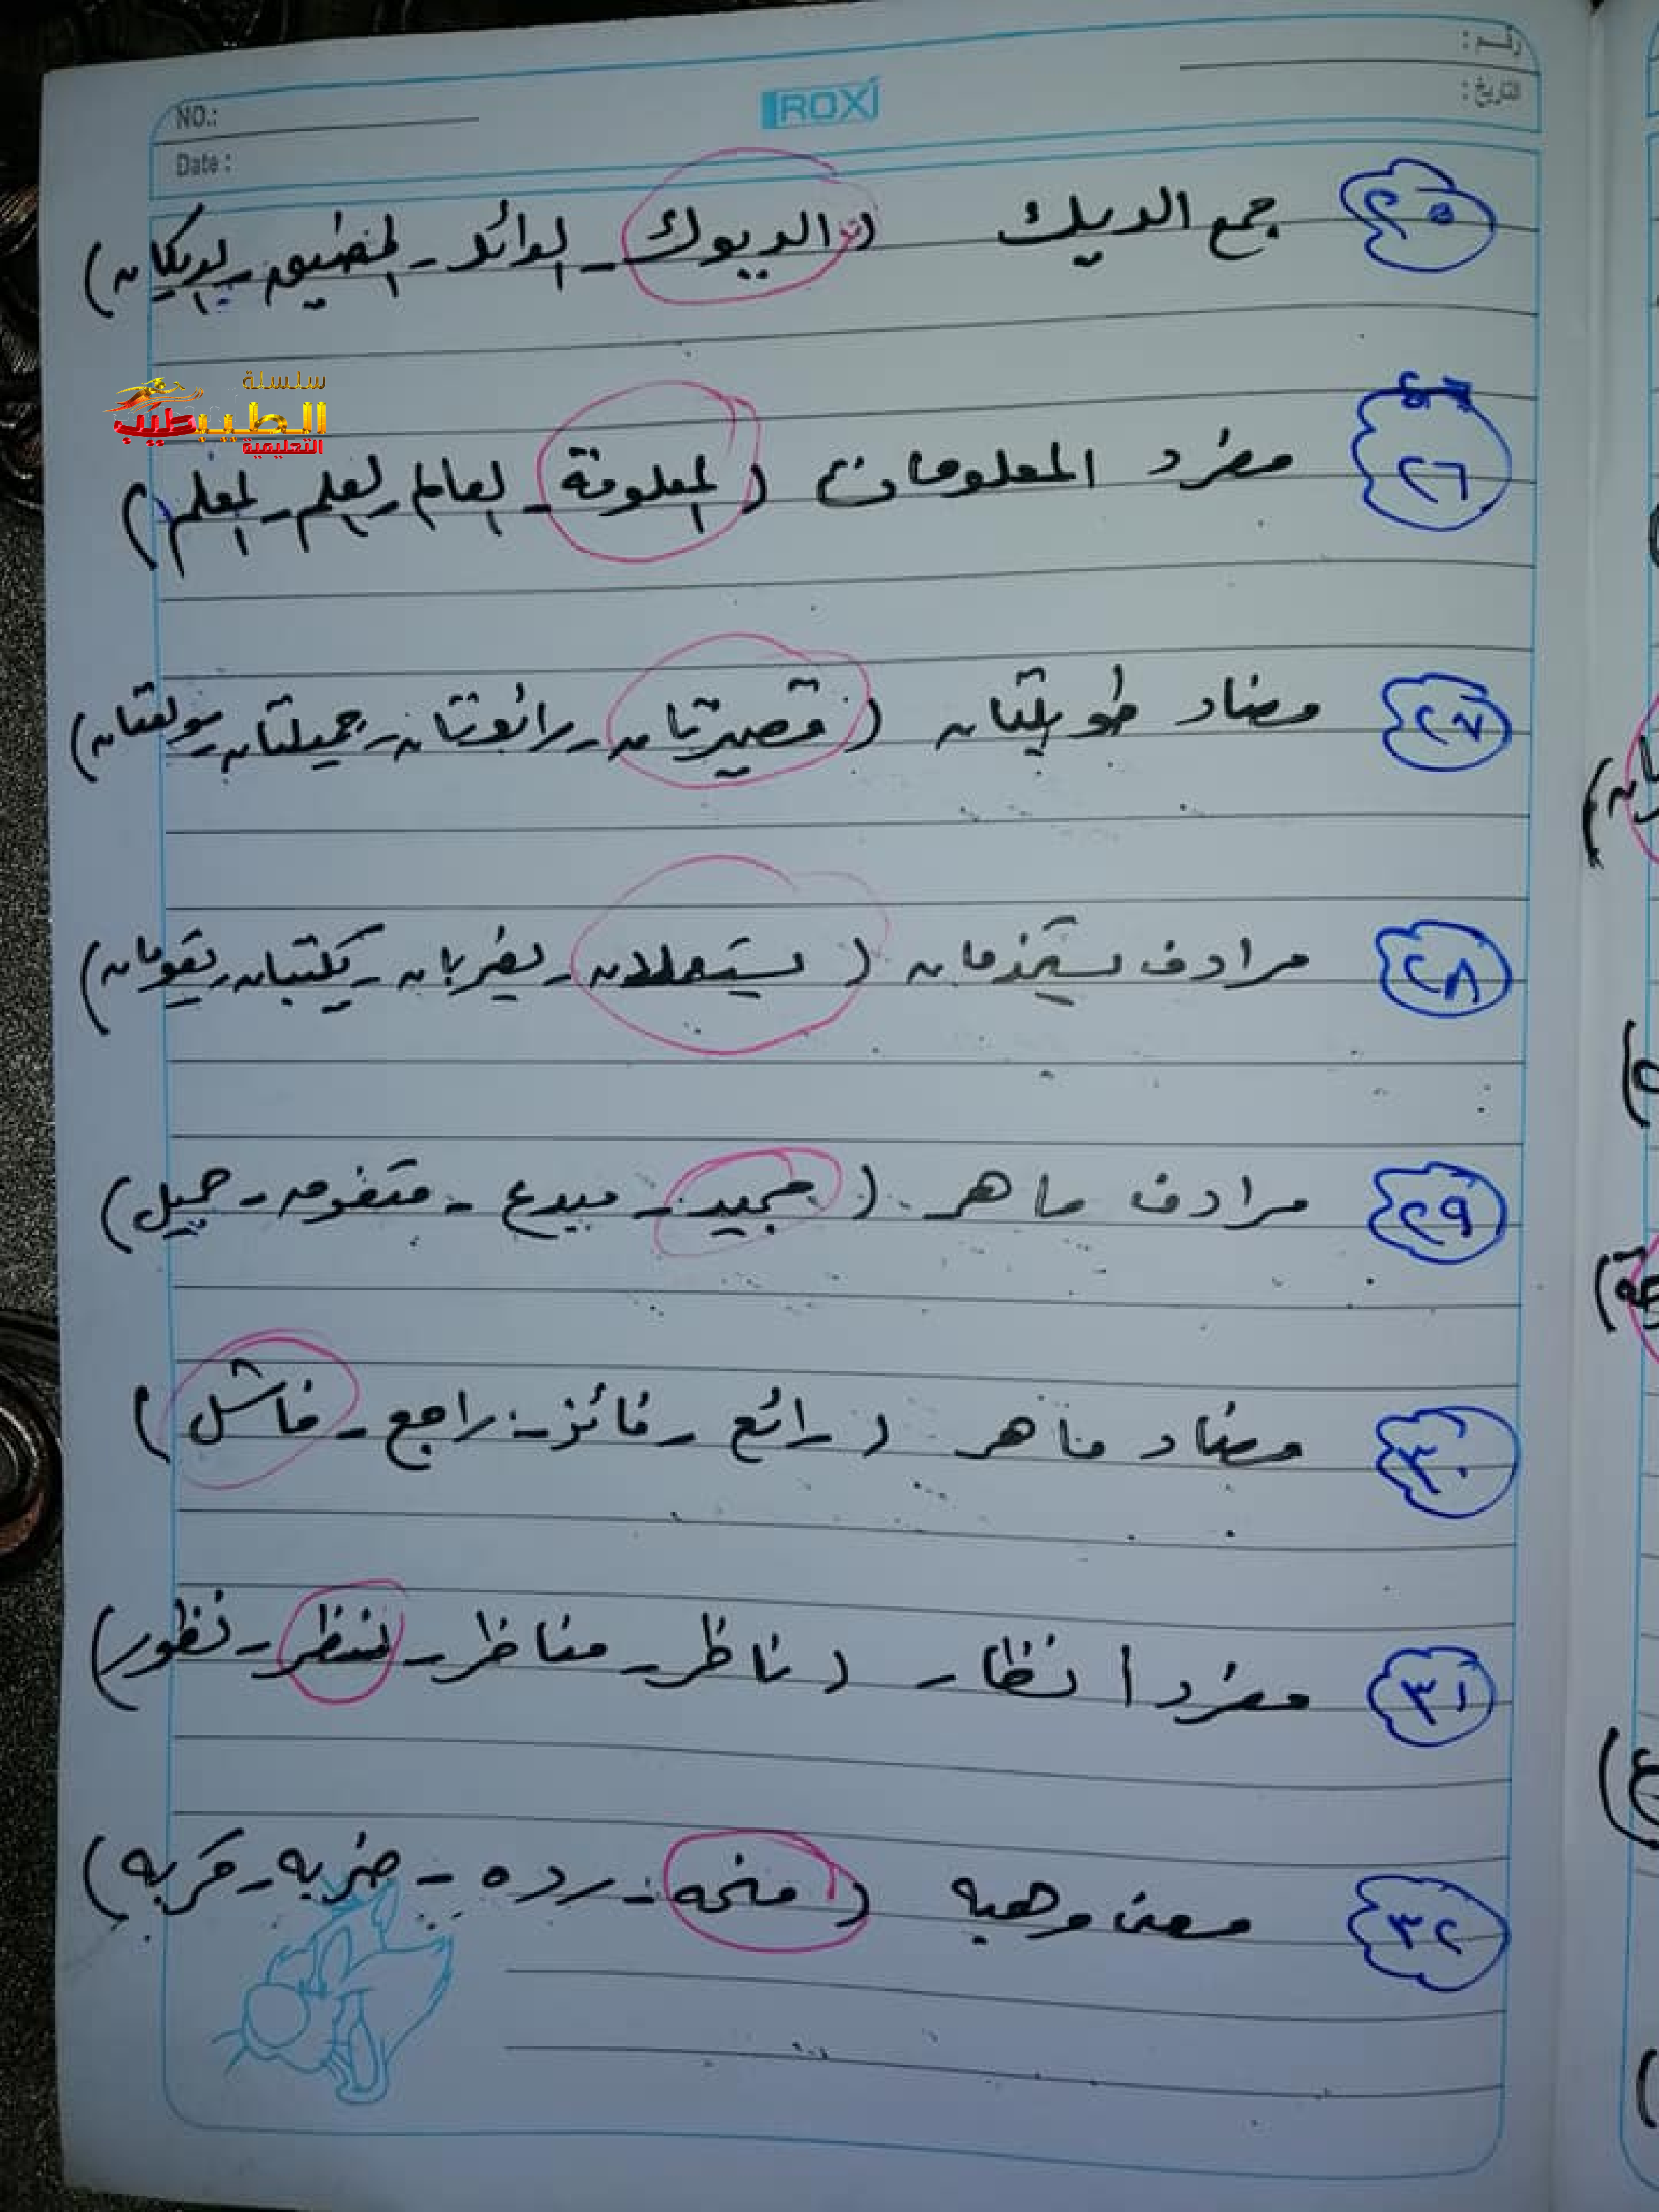 رقم :
التاريخ :
ROXI
NO.:
Date :
٢٥ جمع الديك (الديوك - - - الديكان)
سلسلة
الطيب طيب
التعليمية
٢٦ مفرد المعلومات (المعلومة - العالم - العلم - المعلم)
٢٧ مضاد طويلتان (قصيرتان - رائعتان - جميلتان -
٢٨ مرادف يستخدمان (يستعملان - يضربان - يكتبان - يقومان)
٢٩ مرادف ماهر (مجيد - مبدع - متفوق - جميل)
٣٠ مضاد ماهر (رائع - فائز - راجع - فاشل)
٣١ مفرد انظار (ناظر - مناظر - - نظور)
٣٢ معنى وهبه (منحه - رده - ضربه - قربه)